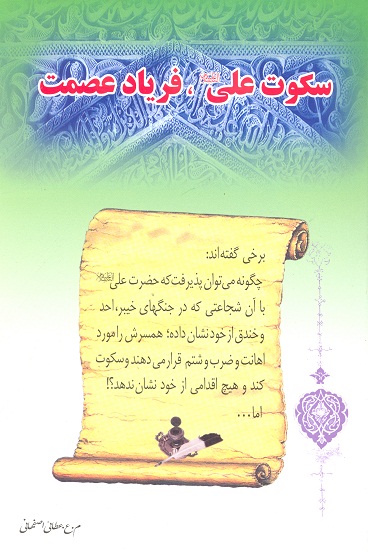 سکوت علی (علیه‌السلام)، فریاد عصمت
برخی گفته‌اند:
چگونه می‌توان پذیرفت که حضرت علی (علیه‌السلام)
با آن شجاعتی که در جنگهای خیبر، احد
و خندق از خود نشان داده؛ همسرش را مورد
اهانت و ضرب و شتم قرار می‌دهند و سکوت
کند و هیچ اقدامی از خود نشان ندهد؟!
اما...
م.ع.عطائی اصفهانی